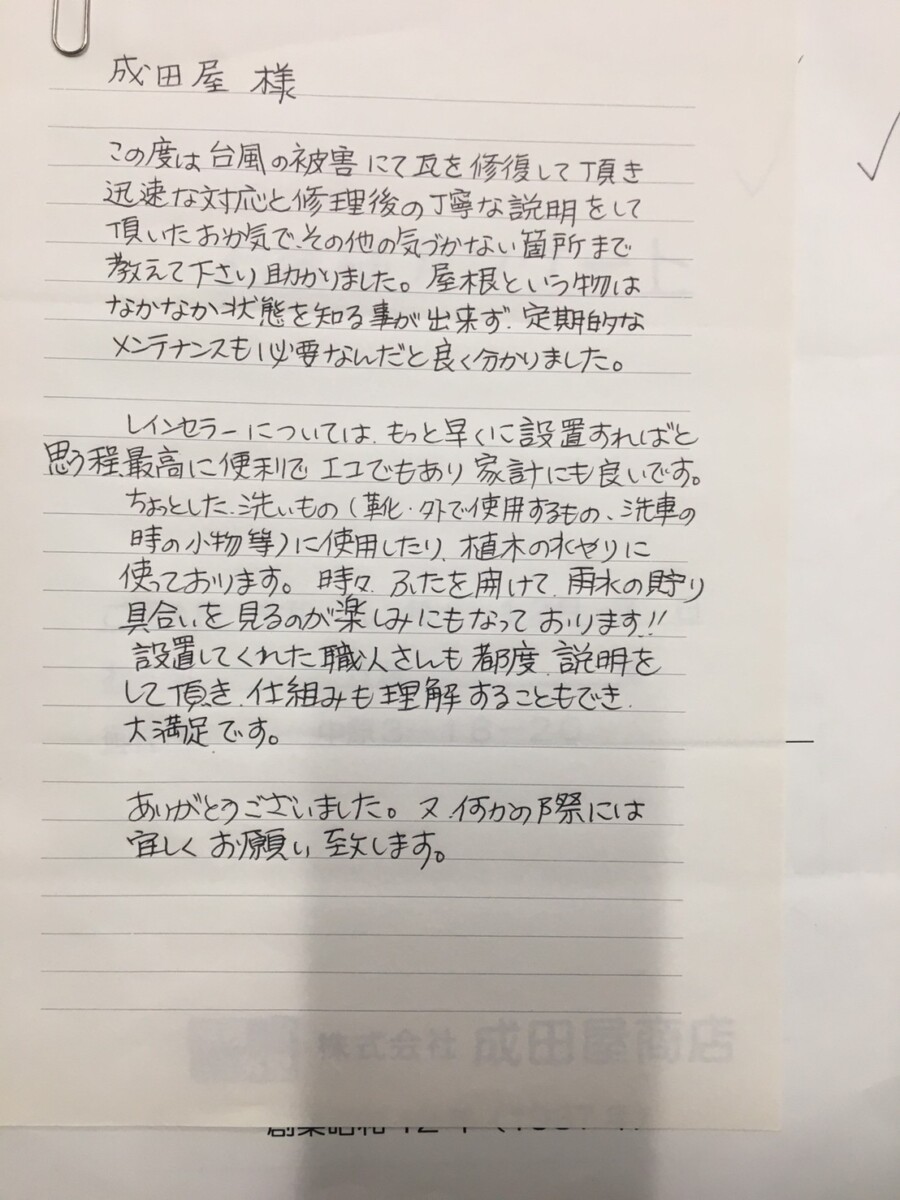 成田屋 様
この度は台風の被害にて瓦を修復して頂き
迅速な対応と修理後の丁寧な説明をして
頂いたおか気で、その他の気づかない箇所まで
教えて下さり助かりました。屋根という物は
なかなか状態を知る事が出来ず、定期的な
メンテナンスも必要なんだと良く分かりました。
レインセラーについては、もっと早くに設置すればと
思う程、最高に便利で エコでもあり 家計にも良いです。
ちょっとした、洗いもの（靴・外で使用するもの、洗車の
時の小物等）に使用したり、植木の水やりに
使っております。時々、ふたを開けて、雨水の貯り
具合いを見るのが楽しみにもなっております!!
設置してくれた職人さんも都度、説明を
して頂き、仕組みも理解することもでき、
大満足です。
ありがとうございました。又、何かの際には
宜しくお願い致します。
株式会社 成田屋商店